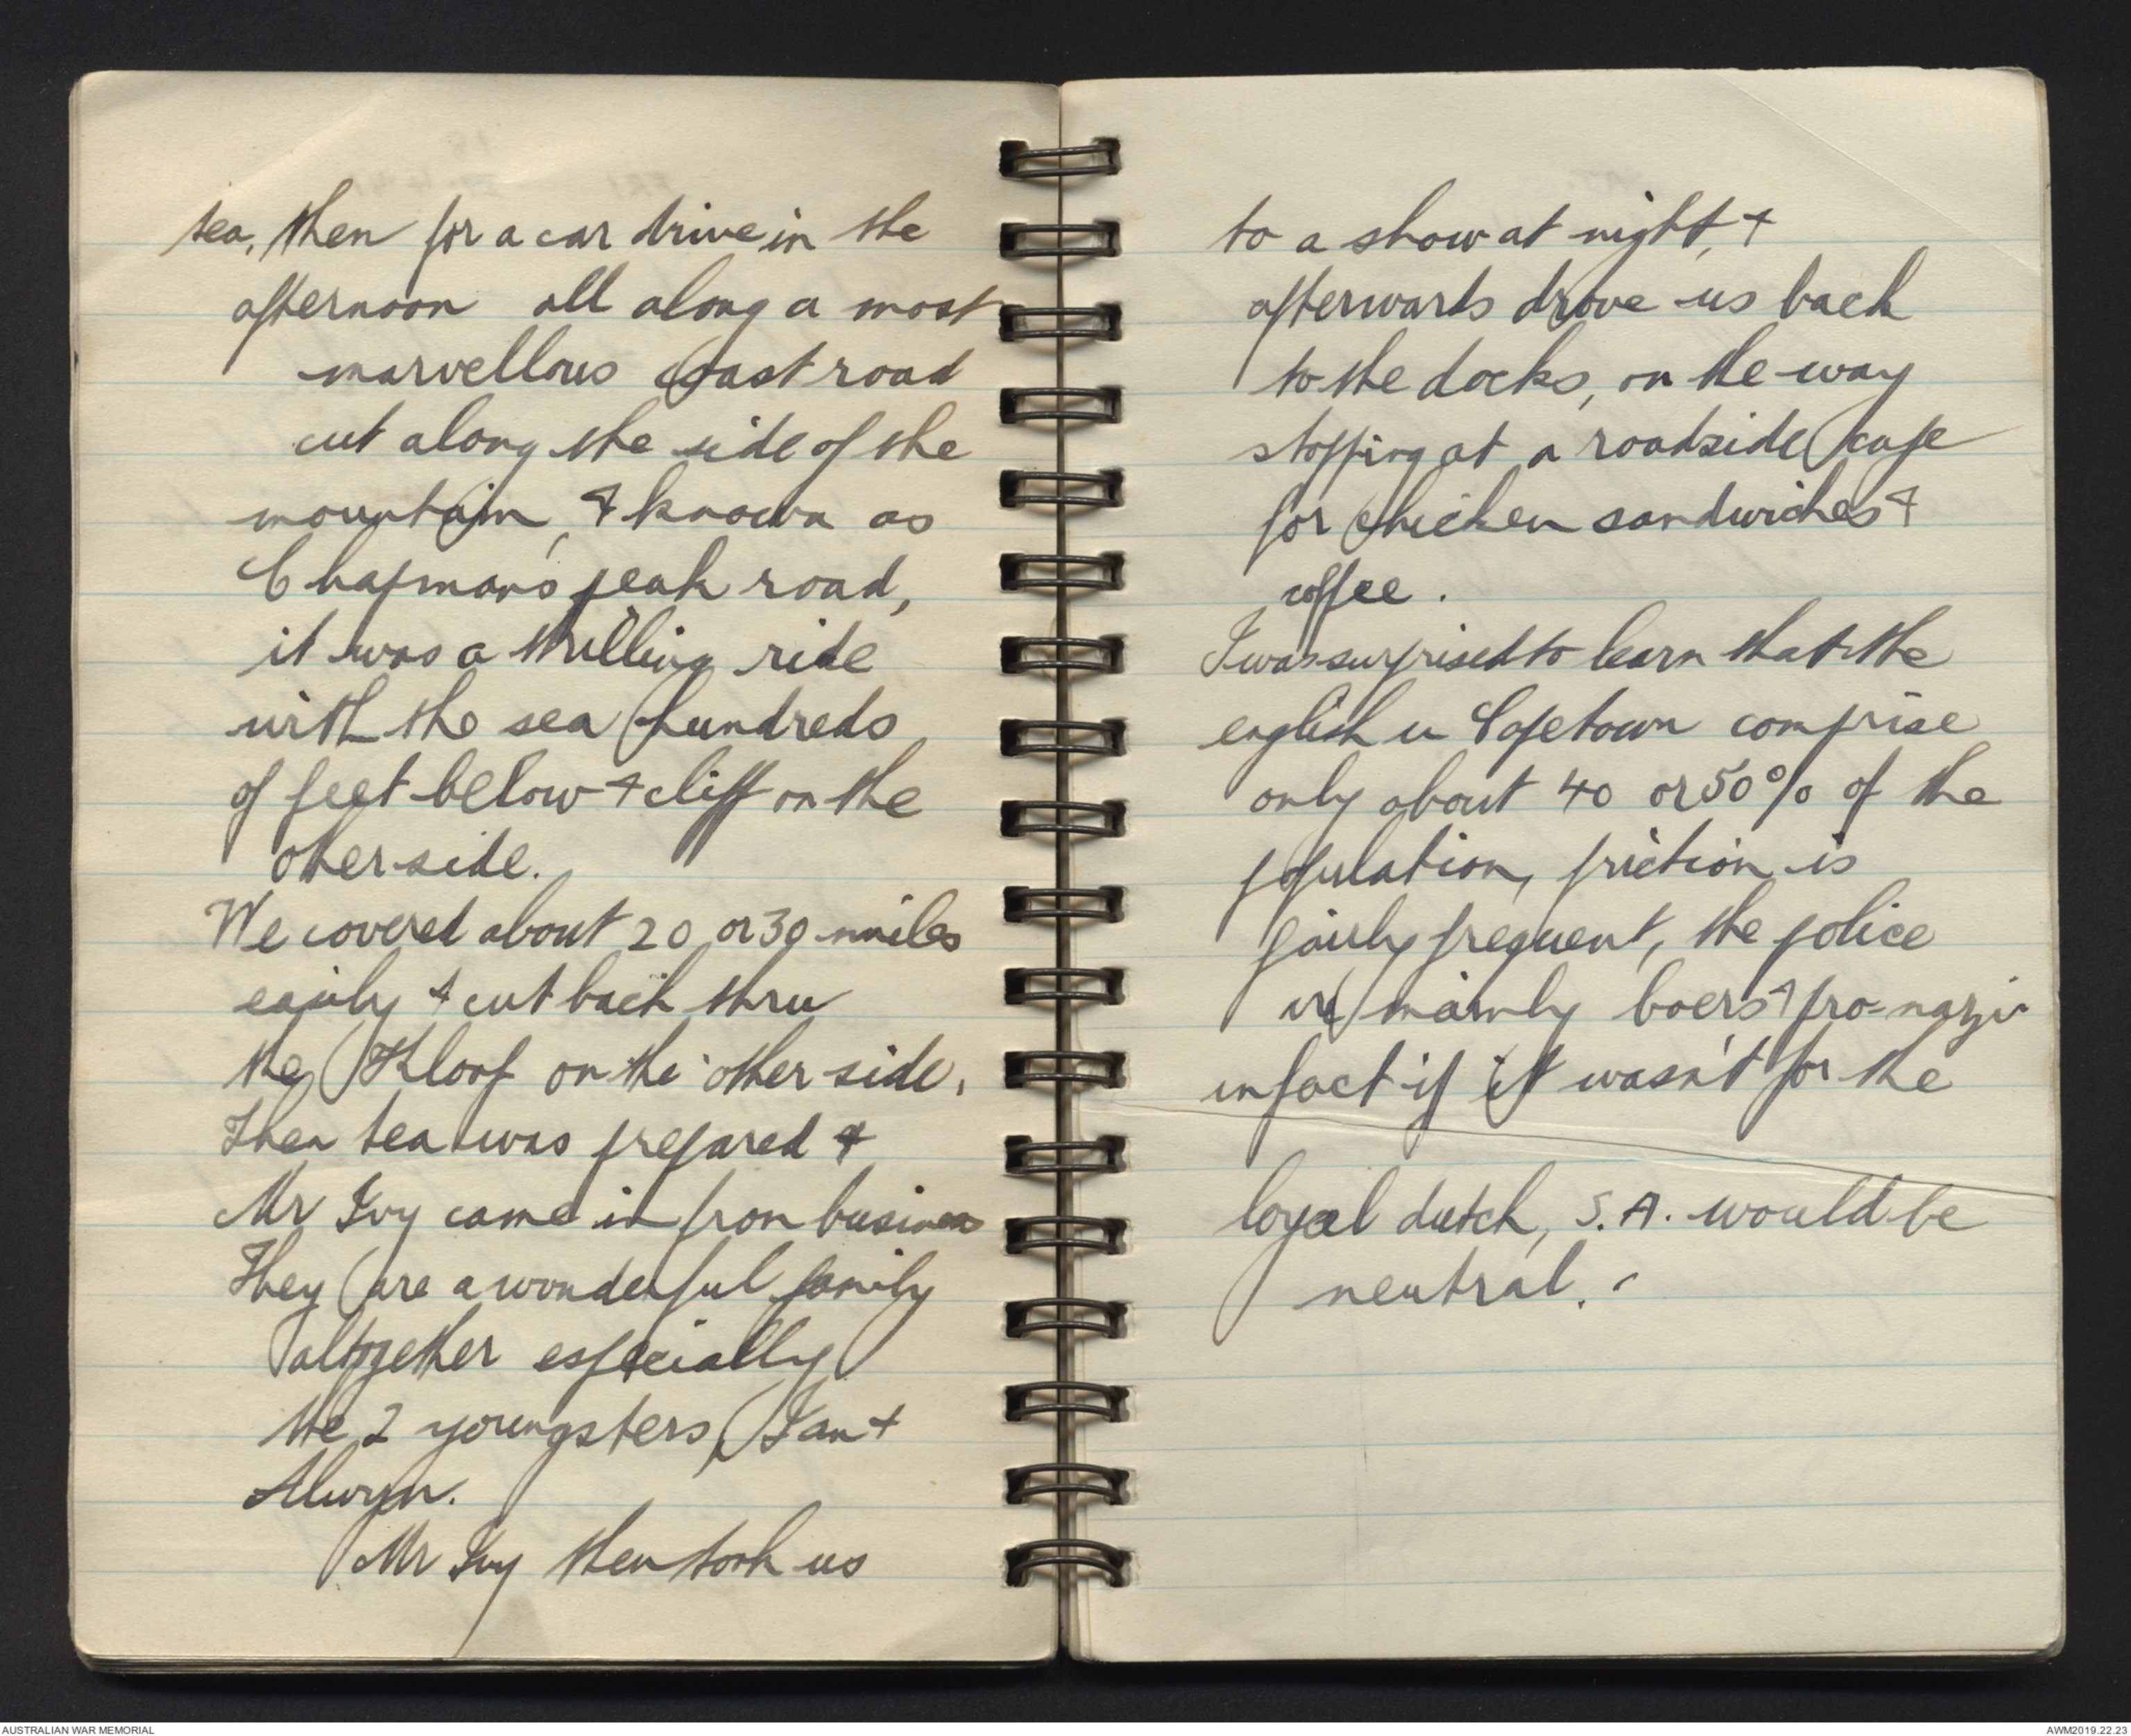 tea, then for a car drive in the
afternoon all along a most
marvellous coast road
cut along the side of the
mountain, & known as
Chapman's peak road,
it was a thrilling ride
with the sea hundreds
of feet below & cliff on the
other side.
We covered about 20 or 30 miles
easily & cut back thru
the Kloof on the other side.
Then tea was prepared &
Mr Ivy came in from business
They are a wonderful family
altogether especially
the 2 youngsters, Ian &
Alwyn.
Mr Ivy then took us
to a show at night, &
afterwards drove us back
to the docks, on the way
stopping at a roadside cafe
for chicken sandwiches &
coffee.
I was surprised to learn that the
english in Capetown comprise
only about 40 or 50% of the
population, friction is
fairly frequent, the police
are mainly boers & pro-nazi
infact if it wasn't for the
loyal dutch, S.A. would be
neutral.
AUSTRALIAN WAR MEMORIAL
AWM2019.22.23